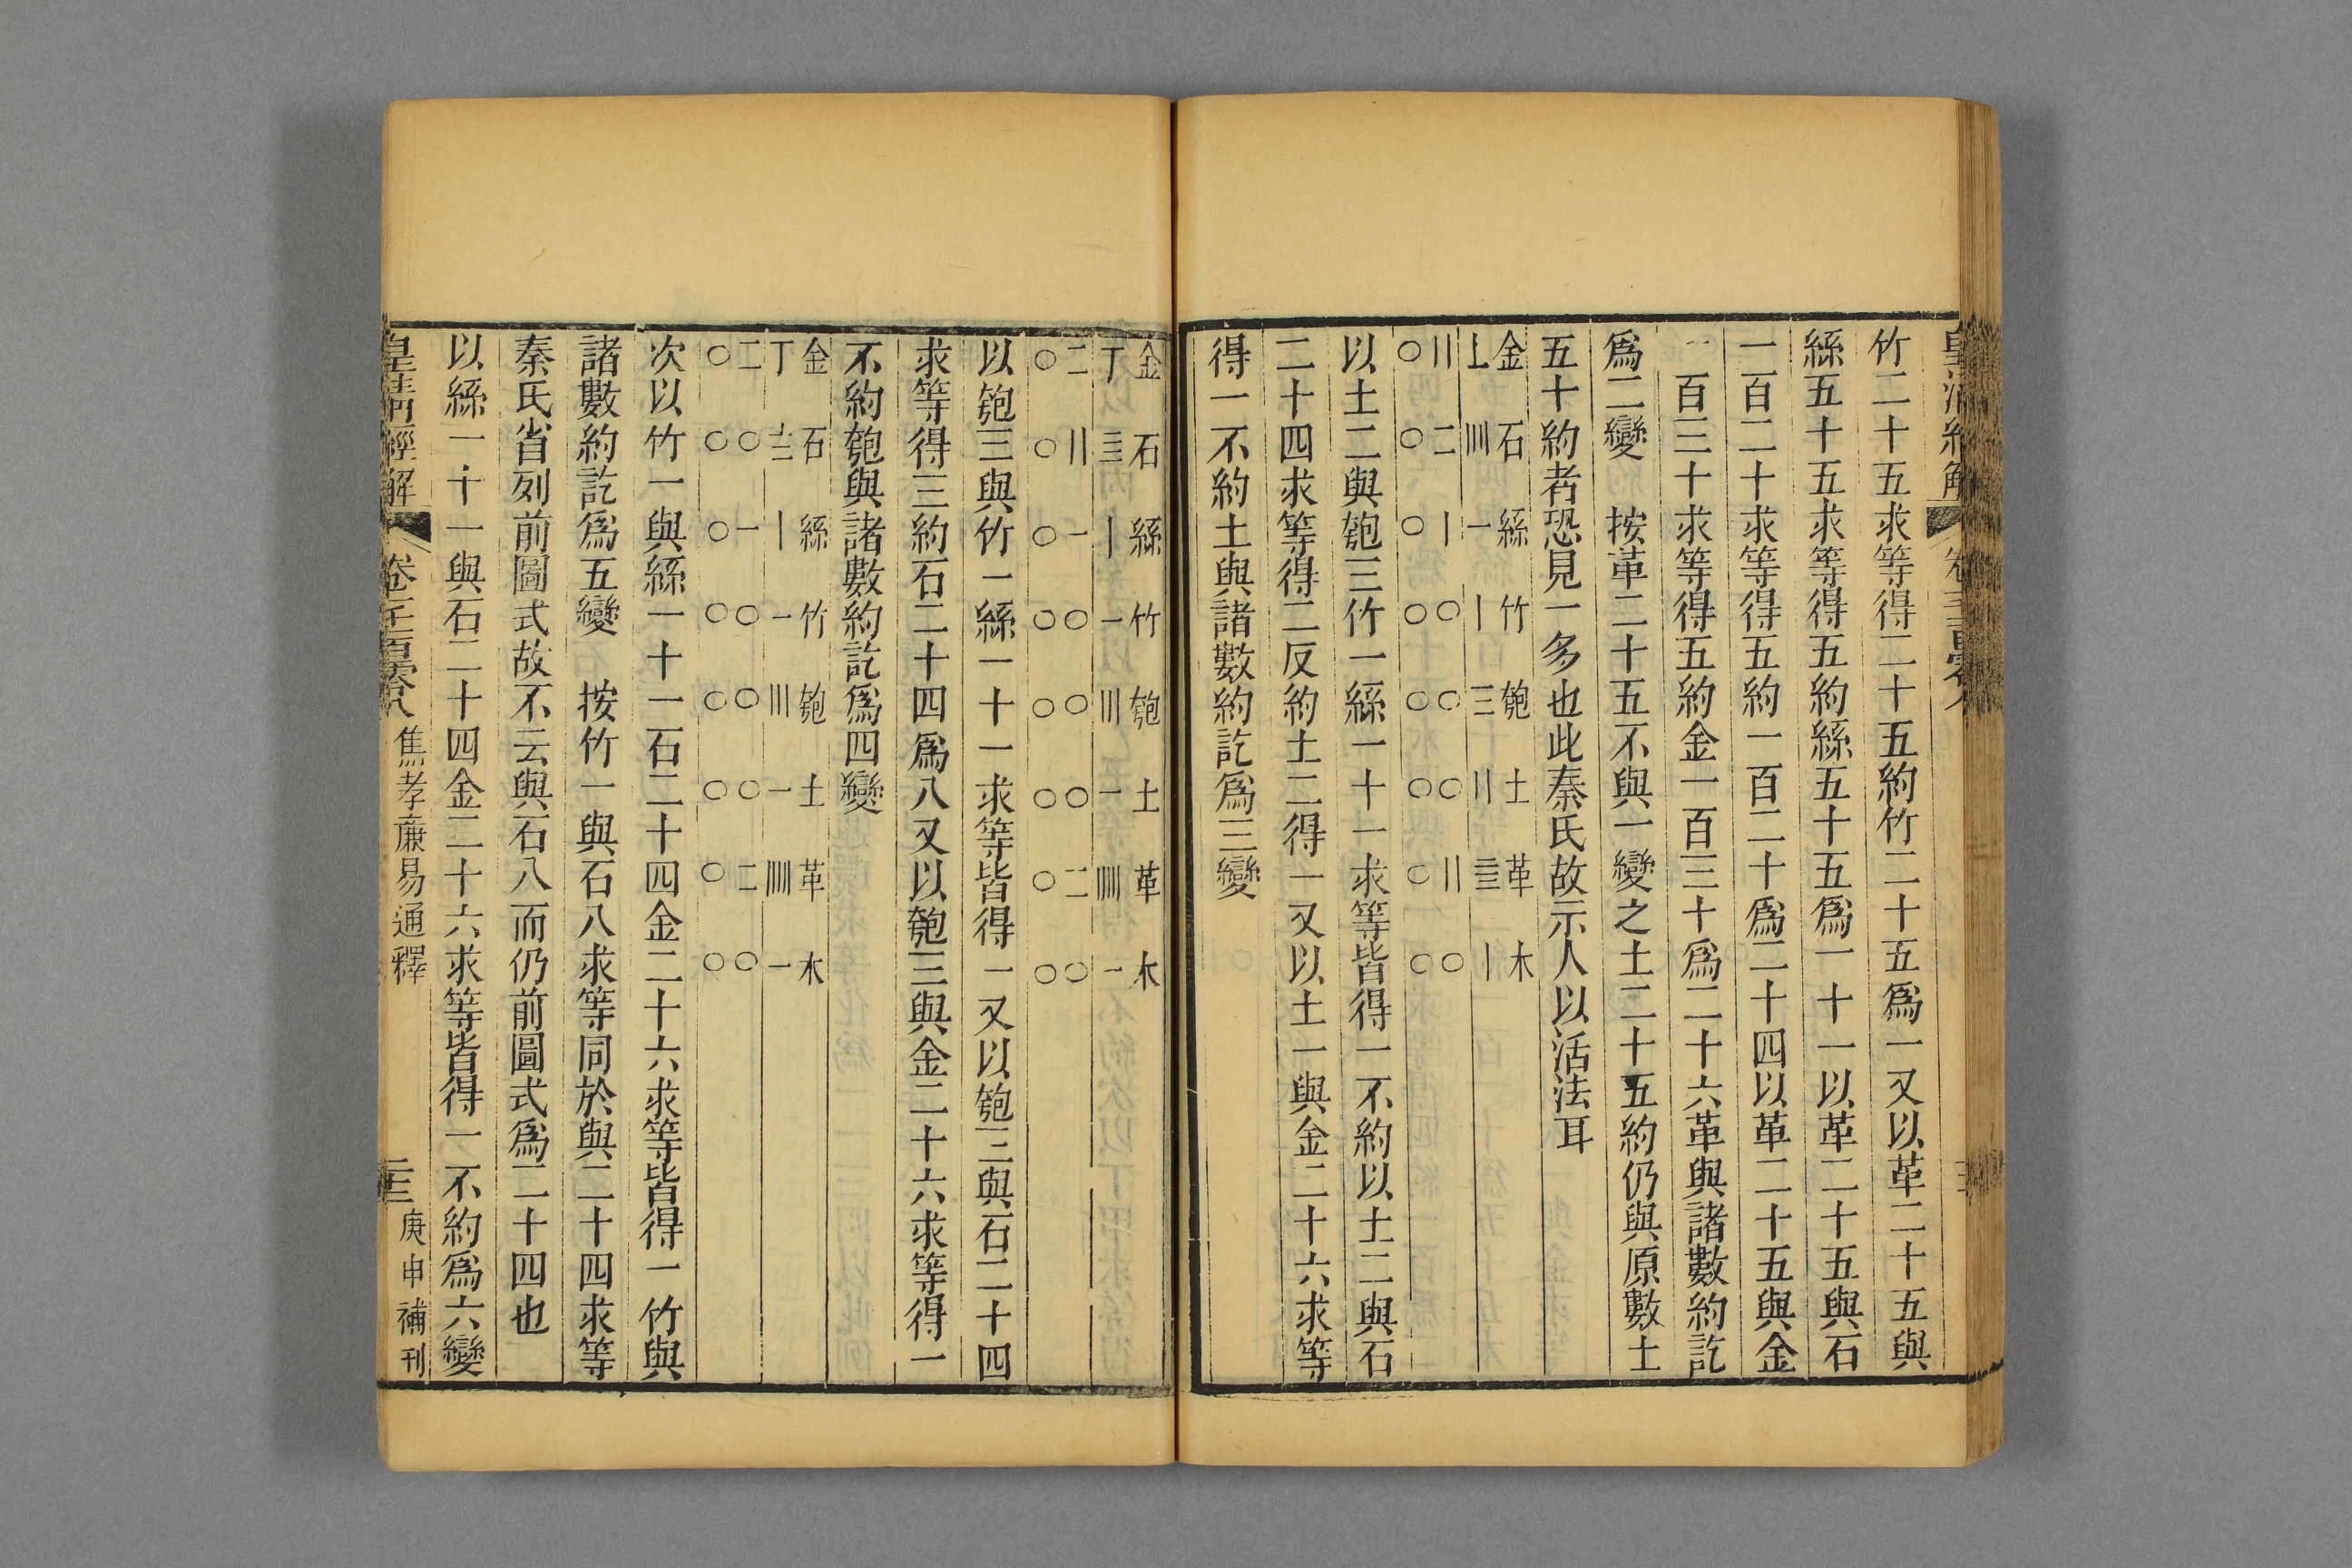 皇清經解
竹二十五求等得二十五約竹二十五爲一又以革二十五與
絲五十五求等得五約絲五十五爲一十一以革二十五與石
一百二十求等得五約一百二十爲二十四以革二十五與金
一百三十求等得五約金一百三十爲二十六革與諸數約訖
爲二變　按革二十五不與一變之土二十五約仍與原數土
五十約者恐見一多也此秦氏故示人以活法耳
金　石　絲　竹　匏　土　革　木
〢　二　〡　〇　〇　〇　〢　〇
〇　〇　〇　〇　〇　〇　〇　〇
以土二與匏三竹一絲一十一求等皆得一不約以土二與石
二十四求等得二反約土二得一又以土一與金二十六求等
得一不約土與諸數約訖爲三變
金　石　絲　竹　匏　土　革　木
二　〢　一　〇　〇　〇　二　〇
〇　〇　〇　〇　〇　〇　〇　〇
以匏三與竹一絲一十一求等皆得一又以匏三與石二十四
求等得三約石二十四爲八又以匏三與金二十六求等得一
不約匏與諸數約訖爲四變
金　石　絲　竹　匏　土　革　木
二　〇　一　〇　〇　〇　二　〇
〇　〇　〇　〇　〇　〇　〇　〇
次以竹一與絲一十一石二十四金二十六求等皆得一竹與
諸數約訖爲五變　按竹一與石八求等同於與二十四求等
秦氏省列前圖式故不云與石八而仍前圖式爲二十四也
以絲一十一與石二十四金二十六求等皆得一不約爲六變
皇清經解　卷一千一百零八　焦孝廉易通釋　庚申補刊